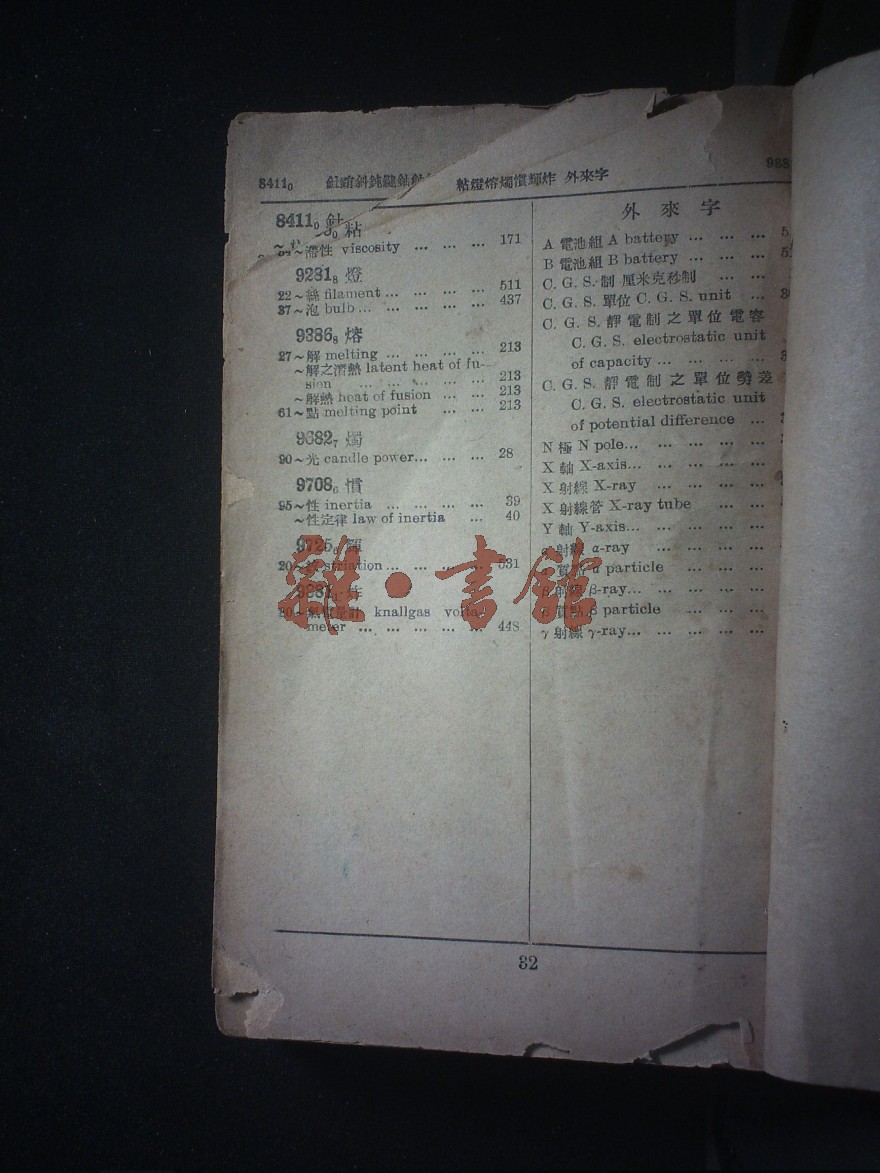 8411₀
粘燈熔燭慣輝炸 外來字
8411₀
粘
~滯性 viscosity ... ... ... 171
9281₈ 燈
22~絲 filament ... ... ... ... 511
37~泡 bulb ... ... ... ... ... 437
9386₈ 熔
27~解 melting ... ... ... ... 213
~解之潛熱 latent heat of fu-
sion ... ... ... ... ... 213
~解熱 heat of fusion ... ... 213
61~點 melting point ... ... 213
9682₇ 燭
90~光 candle power... ... ... 28
9708₆ 慣
95~性 inertia ... ... ... ... 39
~性定律 law of inertia ... 40
9725₆ 輝
20~ striation ... ... ... ... 531
炸
knallgas volta-
meter ... ... ... ... ... 448
外來字
A 電池組 A battery ... ... ...
B 電池組 B battery ... ... ...
C. G. S. 制 厘米克秒制 ... ...
C. G. S. 單位 C. G. S. unit ...
C. G. S. 靜電制之單位電容
C. G. S. electrostatic unit
of capacity ... ... ... ...
C. G. S. 靜電制之單位勢差
C. G. S. electrostatic unit
of potential difference ...
N 極 N pole... ... ... ... ...
X 軸 X-axis... ... ... ... ...
X 射線 X-ray ... ... ... ...
X 射線管 X-ray tube ... ...
Y 軸 Y-axis... ... ... ... ...
α 射線 α-ray ... ... ... ...
α particle ... ... ...
β 射線 β-ray... ... ... ... ...
β 質點 β particle ... ... ...
γ 射線 γ-ray... ... ... ... ...
雜·書館
32